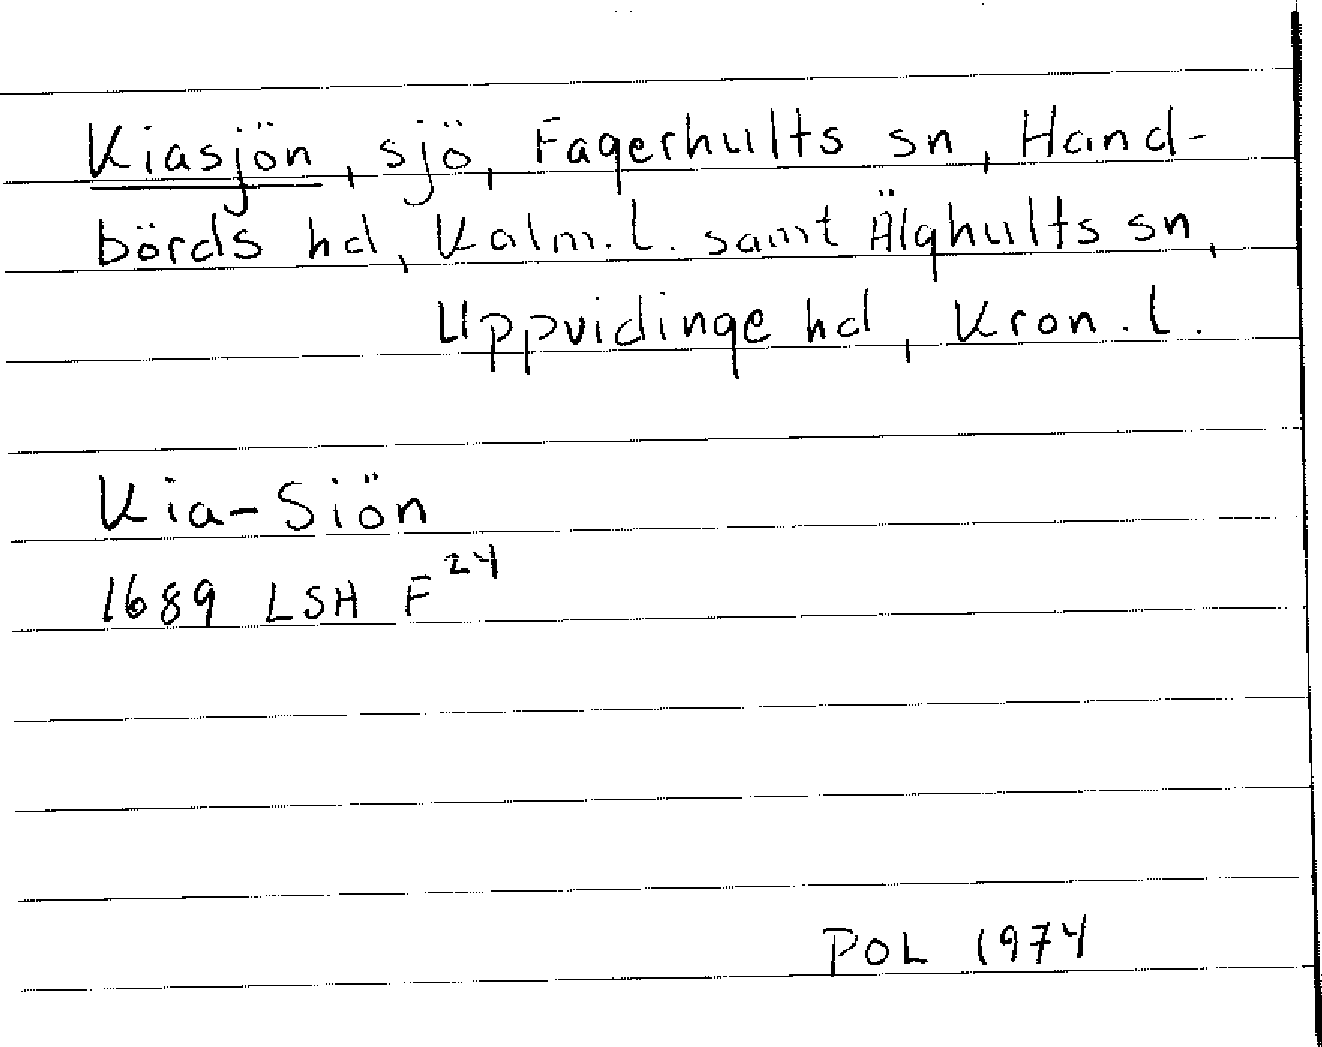 Kiasjön, sjö, Fagerhults sn, Hand-
börds hd, Kalm. l. samt Älghults sn,
Uppvidinge hd, Kron. l.
Kia-Siön
1689 LSH F 24
POL 1974